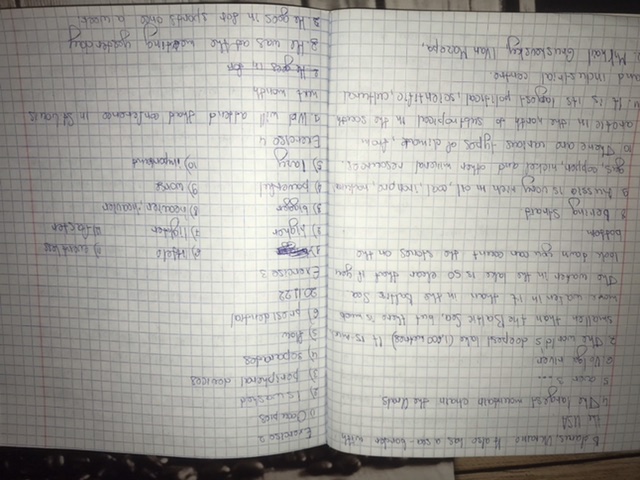 Ukraine. It also has a sea-border with
the USA
4 The largest mountain chain the Urals
5 over 2 ....
6 Volga river
7. The world's deepest lake (1,600 metres) It is much
smaller than the Baltic Sea, but there is much
more water in it than in the Baltic Sea
The water in the lake is so clear that if you
look down you can count the stones on the
bottom
8 Bering Straid
9 Russia is very rich in oil, coal, iron,
gas, copper, nickel, and other mineral resources.
10 There are various types of climate, from
arctic in the north to subtropical in the south
11. It is its largest political, scientific, cultural
and industrial centre
Ivan Mazepa,
Exercise 2
1) Occupies
2) Is washed
3) peripheral devices
4) separates
5) flow
6) presidential
20.11.22
Exercise 3
1)
2) higher
3) bigger
4) powerful
5) lazy
6) little
7) lighter
8) heavier
9) worse
10) important
Exercise 4
1. We will attend
next month
2. He goes in for
2. He was at the meeting yesterday
3. He goes in for sports once a week.